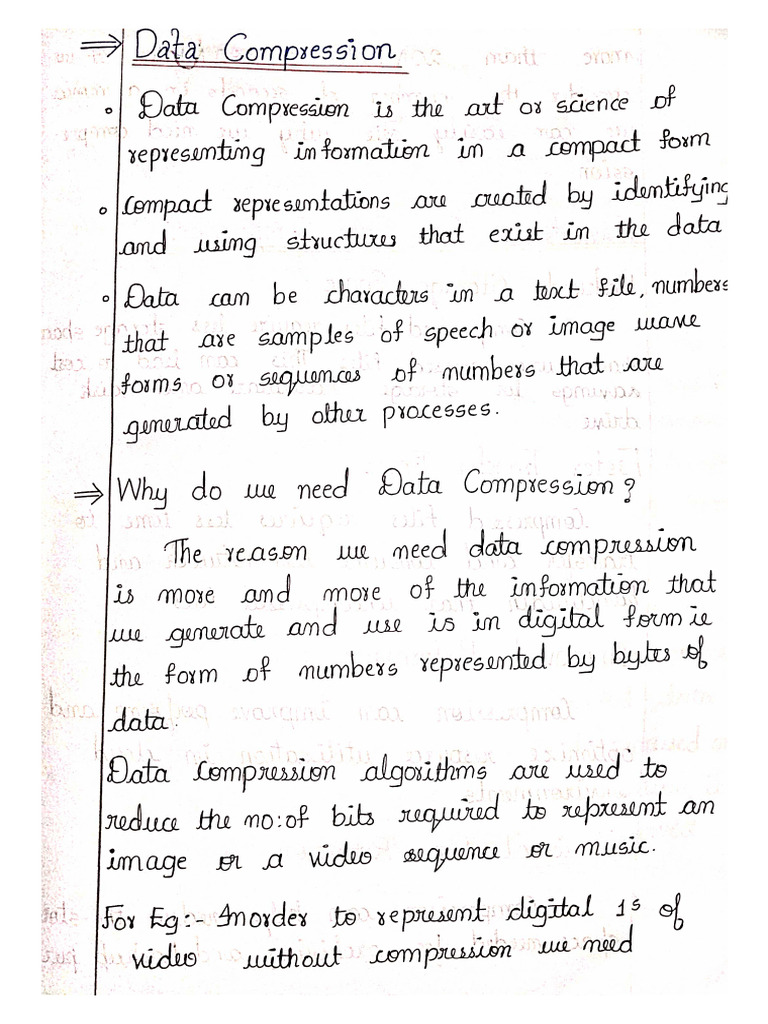 ⇒ Data Compression
∘ Data Compression is the art or science of
representing information in a compact form
∘ Compact representations are created by identifying
and using structures that exist in the data
∘ Data can be characters in a text file, numbers
that are samples of speech or image wave
forms or sequences of numbers that are
generated by other processes.
⇒ Why do we need Data Compression?
The reason we need data compression
is more and more of the information that
we generate and use is in digital form ie
the form of numbers represented by bytes of
data.
Data Compression algorithms are used to
reduce the no:of bits required to represent an
image or a video sequence or music.
For Eg:- Inorder to represent digital 1s of
video without compression we need